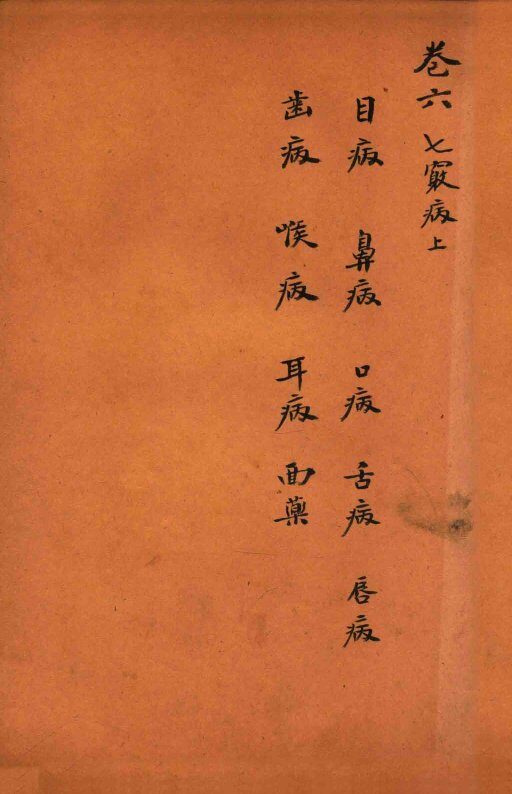 巻六 七竅病上
目病 鼻病 口病 舌病 唇病
歯病 喉病 耳病 面藥